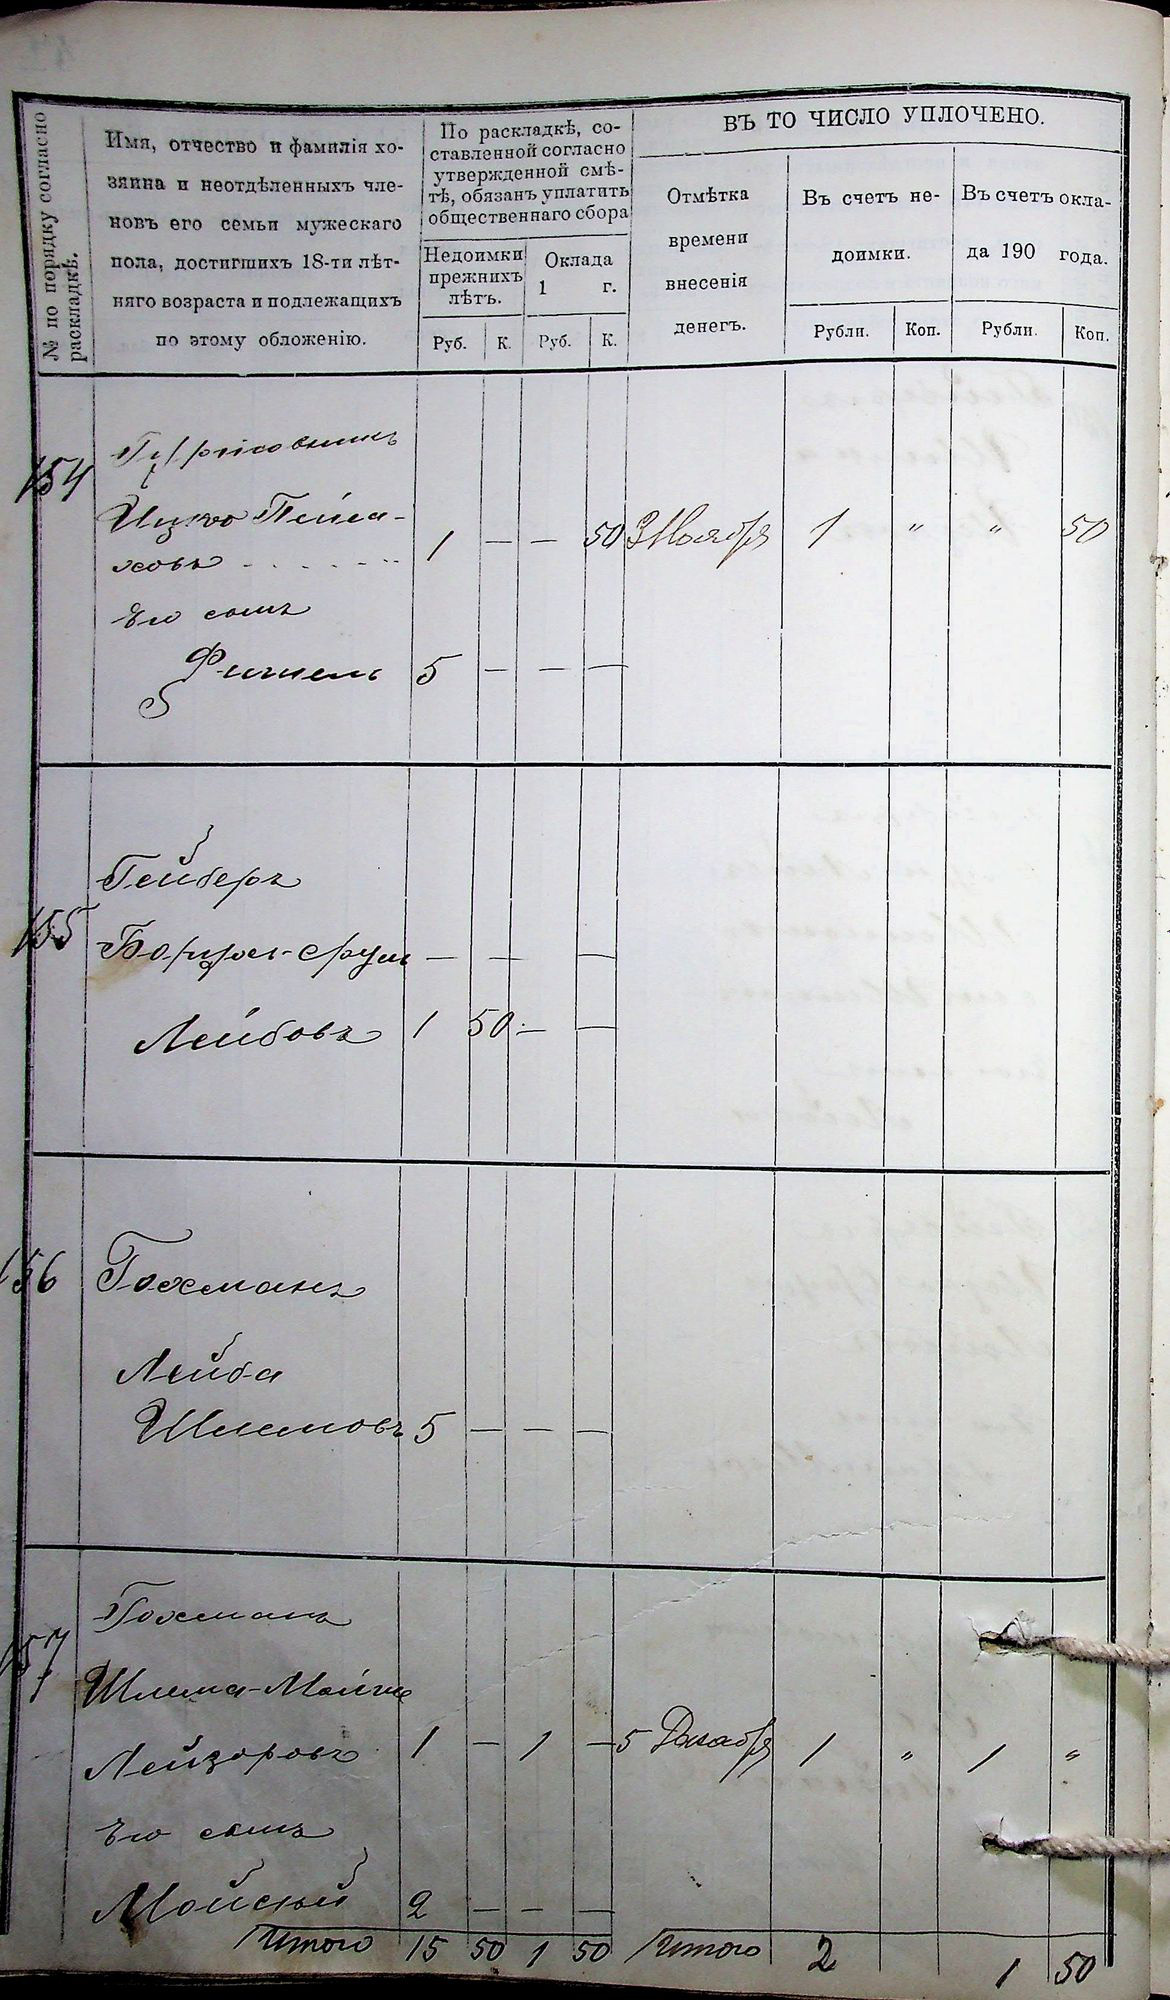 № по порядку согласно раскладкѣ.
Имя, отчество и фамилія хо-
зяина и неотдѣленныхъ чле-
новъ его семьи мужескаго
пола, достигшихъ 18-ти лѣт-
няго возраста и подлежащихъ
по этому обложенію.
По раскладкѣ, со-
ставленной согласно
утвержденной смѣ-
тѣ, обязанъ уплатить
общественнаго сбора
Недоимки
прежнихъ
лѣтъ.
Оклада
1 г.
Руб. К. Руб. К.
ВЪ ТО ЧИСЛО УПЛОЧЕНО.
Отмѣтка
времени
внесенія
денегъ.
Въ счетъ не-
доимки.
Въ счетъ окла-
да 190 года.
Рубли. Коп. Рубли. Коп.
154
Ицко Пейса-
ховъ 1 — — 50 3 Ноября 1 " " 50
Его сынъ
Фишель 5 — — —
155
Гейберъ
Лейбовъ 1 50 — —
156 Гохманъ
Лейба
Шлемовъ 5 — — —
157
Гохманъ
Шлема-
Лейзоровъ 1 — 1 — 5 Декабря 1 " 1 "
Его сынъ
Мойсей 2 — — —
Итого 15 50 1 50 Итого 2 1 50